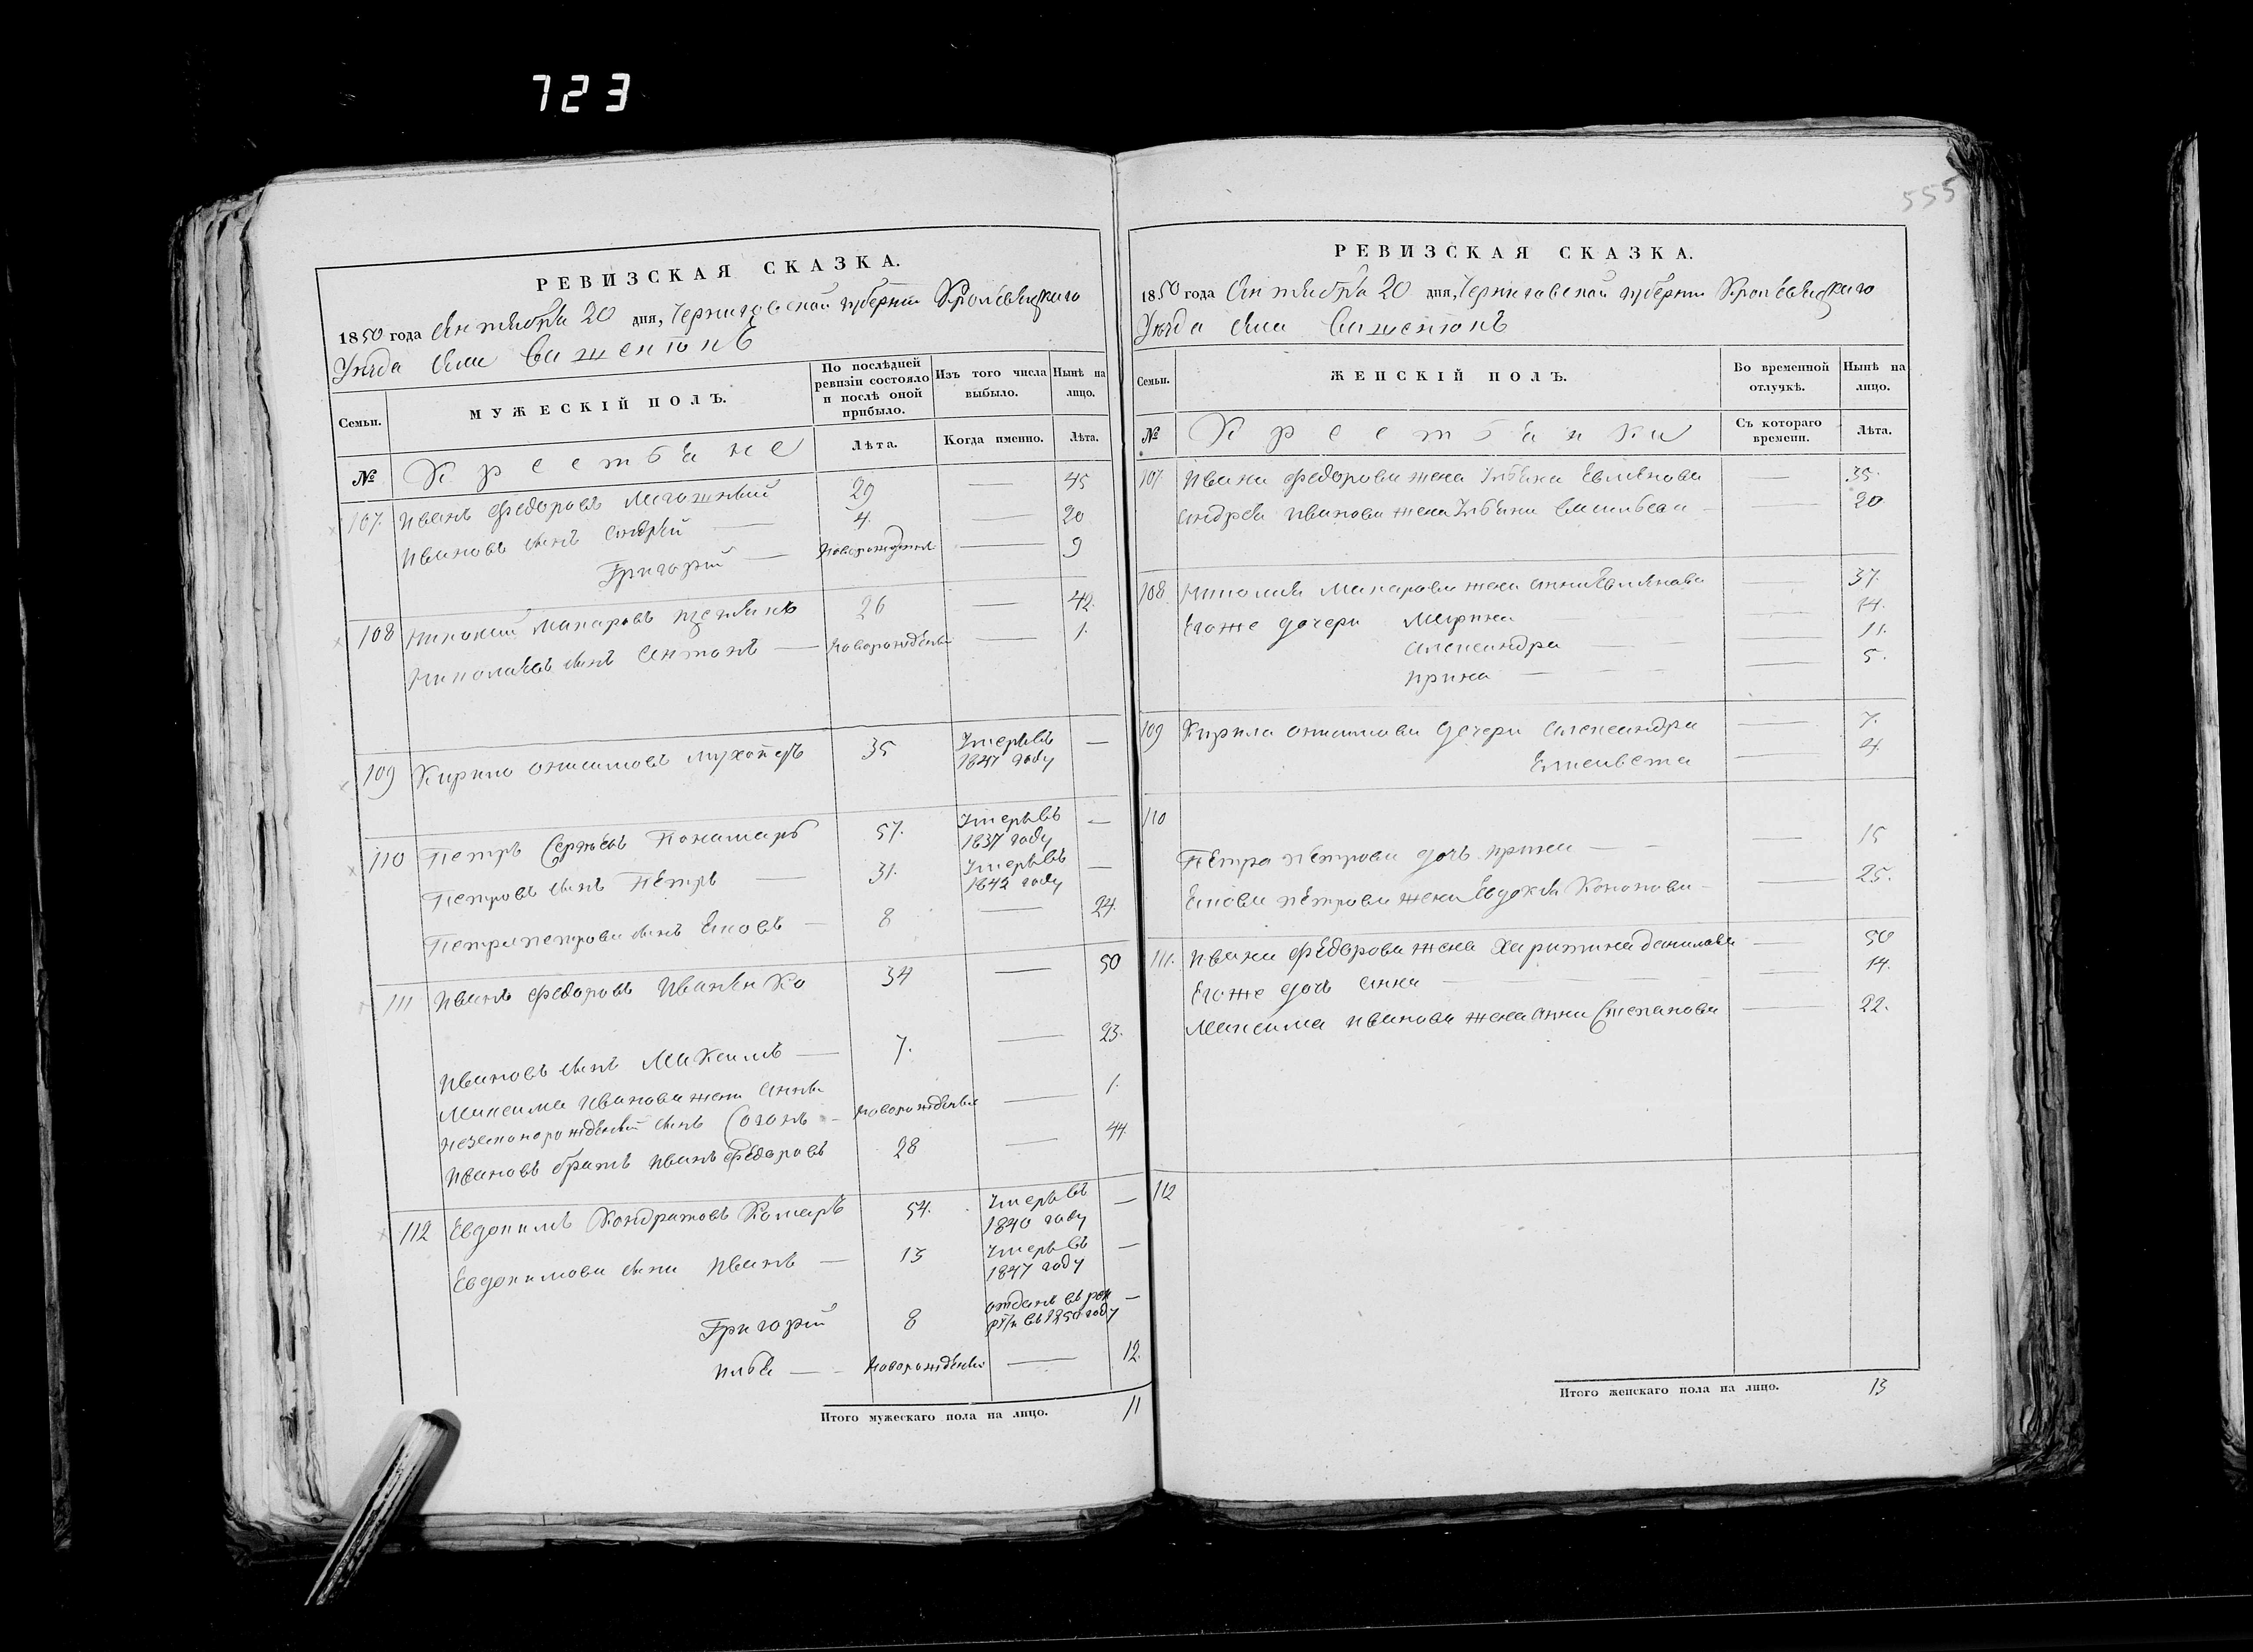 723
555
РЕВИЗСКАЯ СКАЗКА.
1850 года Сентября 20 дня, Черниговской губернии Кролевецкаго
Уезда села
МУЖЕСКІЙ ПОЛЪ.
По послѣдней ревизіи состояло и послѣ оной прибыло.
Изъ того числа выбыло.
Нынѣ на лицо.
Семьи.
Лѣта.
Когда именно.
Лѣта.
№ Крестьяне
107. Иванъ Федоровъ 29 — 45
Ивановъ сынъ Андрей — 4. — 20
Григорій — новорожденный — 9
108 Николай Макаровъ 26 — 42.
Николаевъ сынъ Антонъ — новорожденный — 1.
109 Кирило Онисимовъ 35 Умеръ въ 1847 году —
110 Петръ Сергѣевъ Понамарь 57. Умеръ въ 1837 году —
Петровъ сынъ Петръ — 31. Умеръ въ 1842 году —
Петра Петрова сынъ Яковъ — 8 — 24.
111 Иванъ Федоровъ Иваненко 34 — 50
Ивановъ сынъ Максимъ — 7. — 23.
Максима Иванова жены Анны
незаконорожденный сынъ — новорожденный — 1.
Ивановъ братъ Иванъ Федоровъ 28 — 44
112 Евдокимъ Кондратовъ Комаръ 54. Умеръ въ 1840 году —
Евдокимовы сыны Иванъ — 13 Умеръ въ 1847 году —
Григорій 8 отданъ въ рекруты въ 1850 году —
Илья — новорожденный — 12.
Итого мужескаго пола на лицо. 11
РЕВИЗСКАЯ СКАЗКА.
1850 года Сентября 20 дня, Черниговской губернии Кролевецкаго
Уезда села
Семьи.
ЖЕНСКІЙ ПОЛЪ.
Во временной отлучкѣ.
Нынѣ на лицо.
№ Крестьянки
Съ котораго времени.
Лѣта.
107. Ивана Федорова жена Ульяна — 35.
Андрея Иванова жена Ульяна — 20
108 Николая Макарова жена Анна — 37.
Его же дочери Марина — 14.
Александра — 11.
Ирина — 5.
109 Кирила Онисимова дочери Александра — 7.
Елисавета — 4
110
Петра Петрова дочь Ирина — 15
Якова Петрова жена Евдокія Кононова — 25.
111. Ивана Федорова жена Харитина Данилова — 50
Его же дочь Анна — 14.
Максима Иванова жена Анна Степанова — 22.
112
Итого женскаго пола на лицо. 13